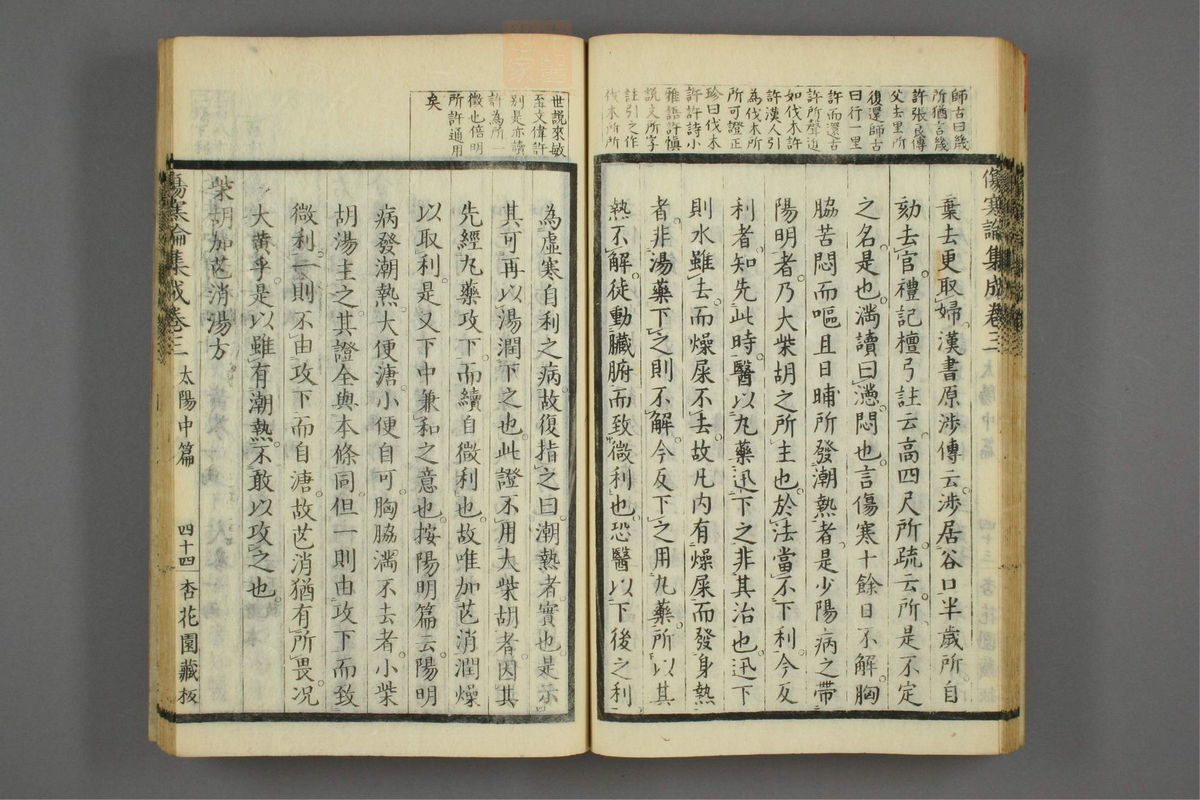 師古曰幾
所猶言幾
許張良傳
父去里所
復還師古
曰行一里
許而還古
許所聲近
如伐木許
許漢人引
為伐木所
所可證正
珍曰伐木
許許詩小
雅語許慎
說文所字
註引之作
伐木所所
傷寒論集成卷三
棄去更取婦漢書原涉傳云涉居谷口半歲所自
劾去官禮記檀弓註云高四尺所疏云所是不定
之名是也滿讀曰懣悶也言傷寒十餘日不解胸
脇苦悶而嘔且日晡所發潮熱者是少陽病之帶
陽明者乃大柴胡之所主也於法當不下利今反
利者知先此時醫以丸藥迅下之非其治也迅下
則水雖去而燥屎不去故凡內有燥屎而發身熱
者非湯藥下之則不解今反下之用丸藥所以其
熱不解徒動臟腑而致微利也恐醫以下後之利
世說來敏
至文偉許
別是亦讀
許為所一
徵也倍明
所許通用
矣
為虛寒自利之病故復指之曰潮熱者實也是示
其可再以湯潤下之也此證不用大柴胡者因其
先經丸藥攻下而續自微利也故唯加芒消潤燥
以取利是又下中兼和之意也按陽明篇云陽明
病發潮熱大便溏小便自可胸脇滿不去者小柴
胡湯主之其證全與本條同但一則由攻下而致
微利一則不由攻下而自溏故芒消猶有所畏况
大黃乎是以雖有潮熱不敢以攻之也
柴胡加芒消湯方
傷寒論集成卷三 太陽中篇 四十四 杏花園藏板